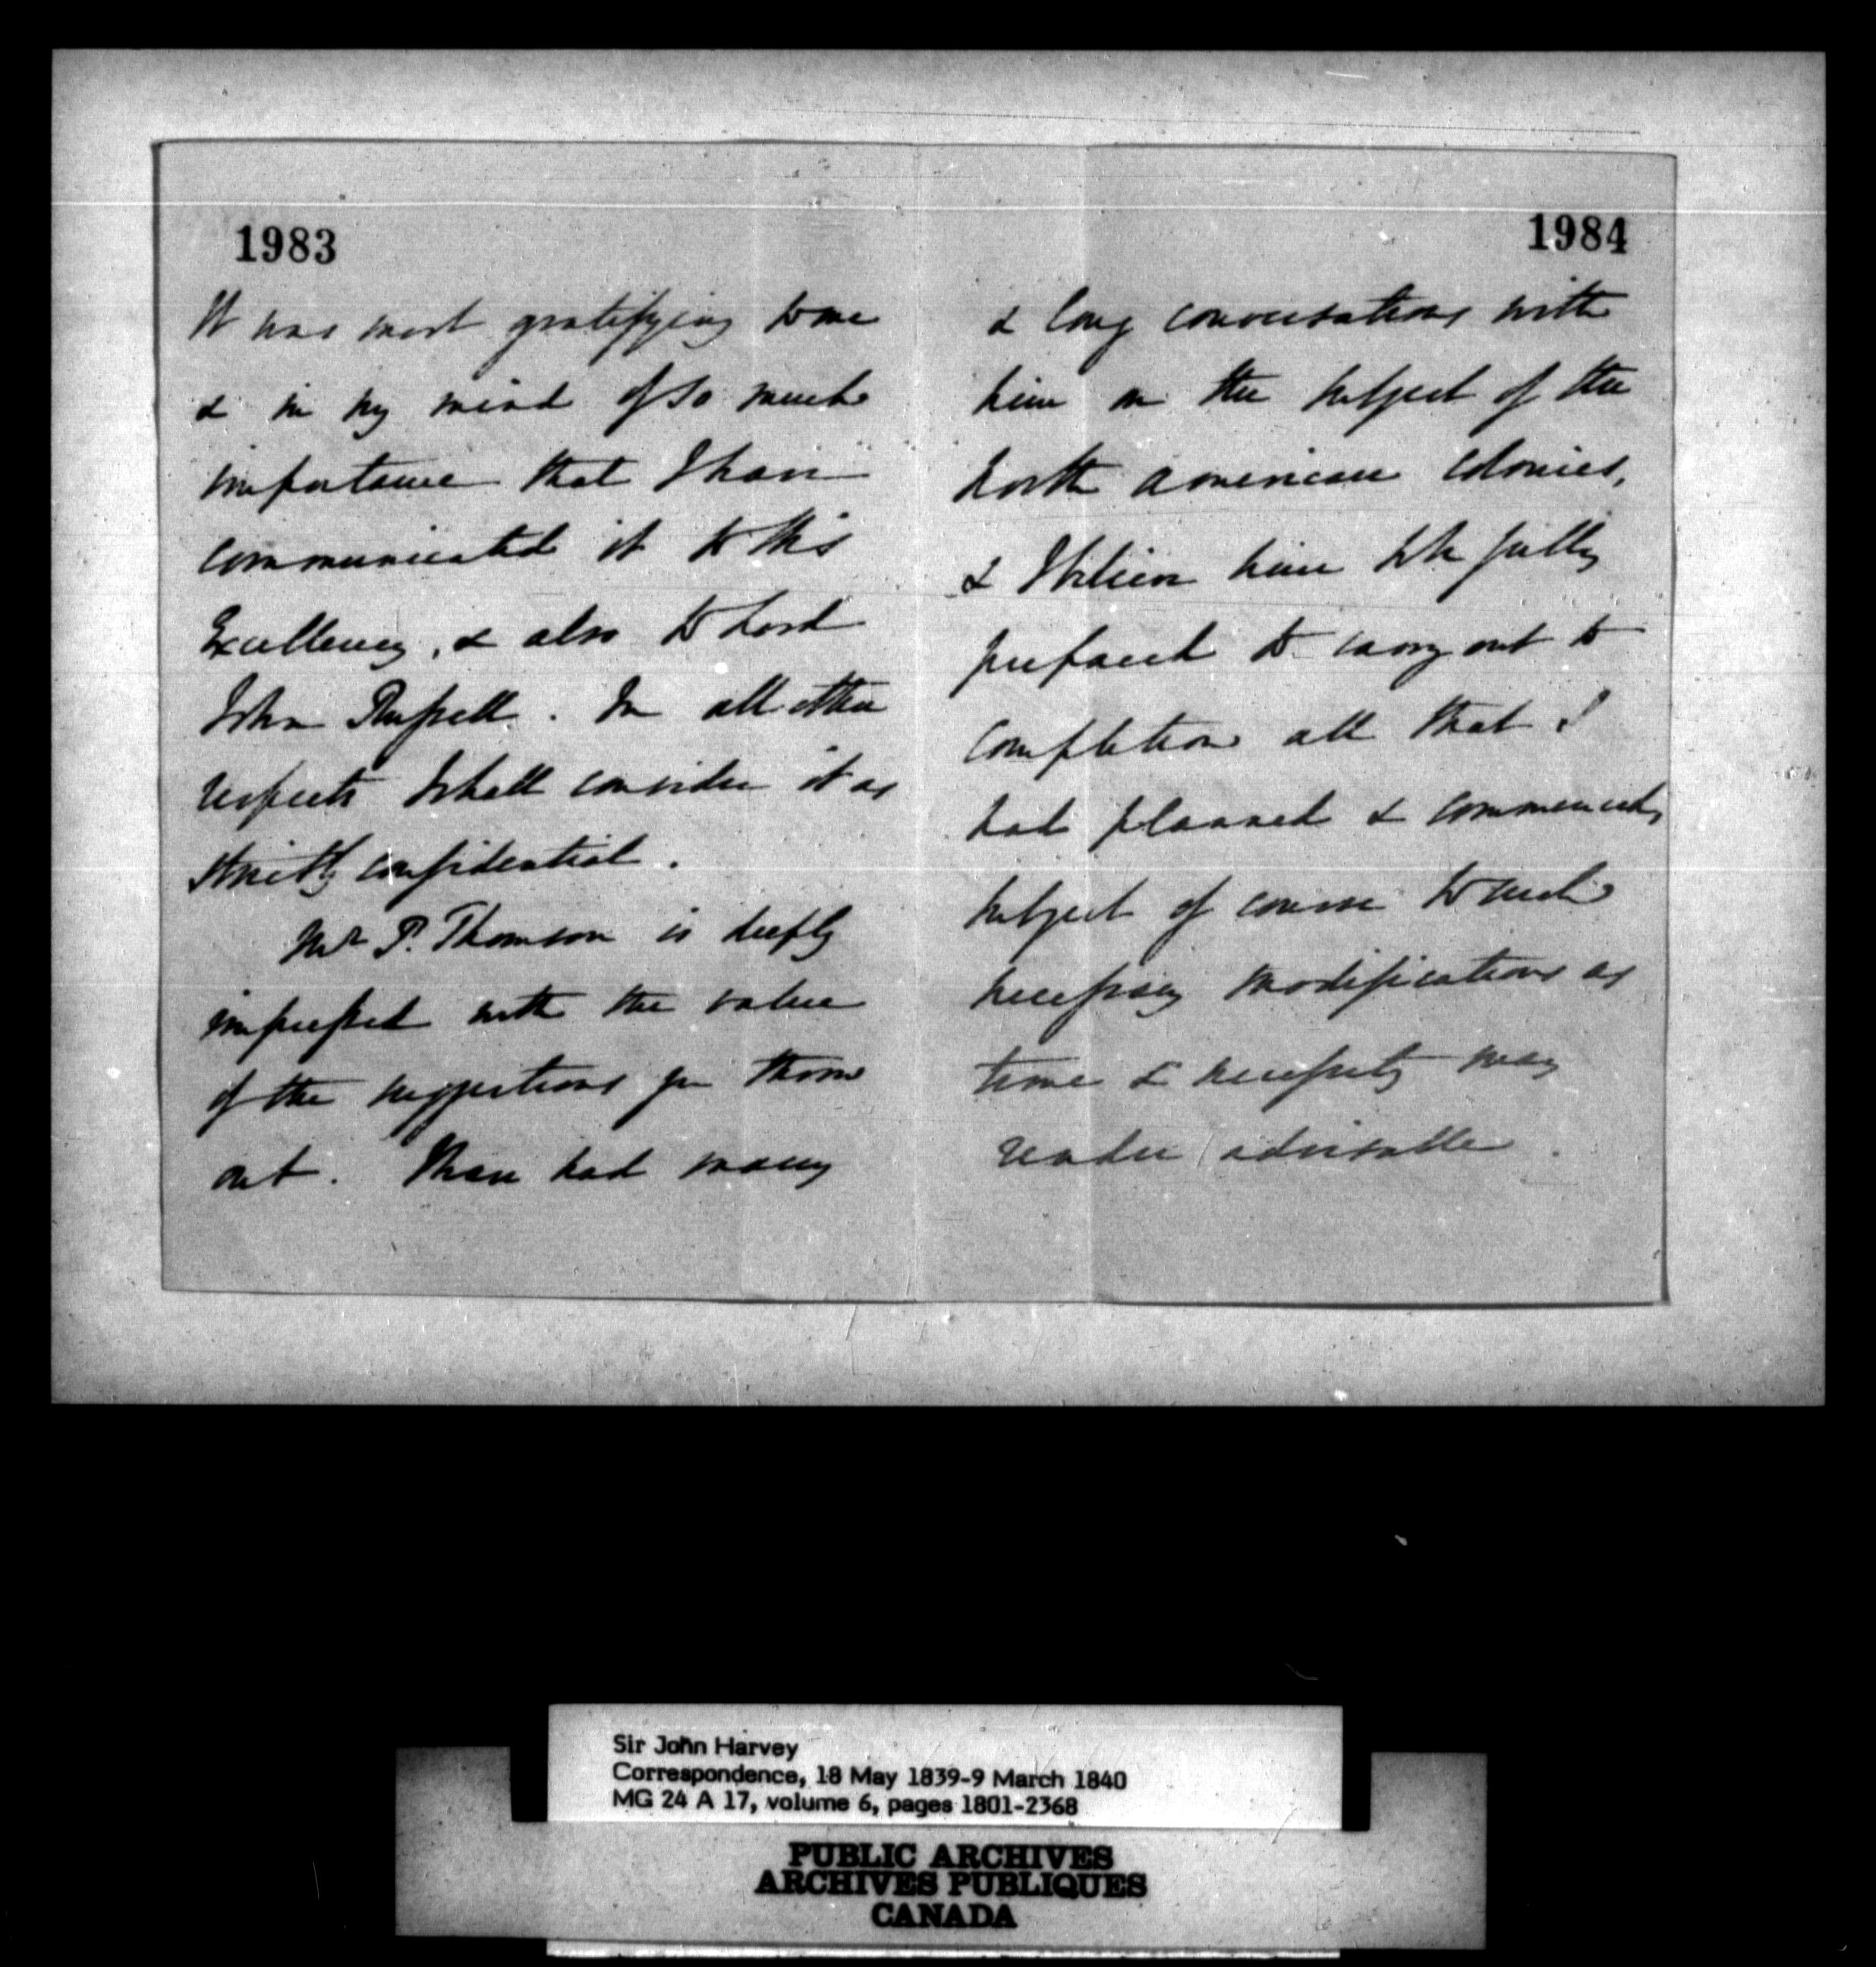 1983
It was most gratifying to me
& in my mind of so much
importance that I have
communicated it to His
Excellency, & also to Lord
John Russell. In all other
respects I shall consider it as
strictly confidential.
Mr P. Thomson is deeply
impressed with the value
of the suggestions you throw
out. I have had many
1984
& long conversations with
him on the subject of the
North American Colonies,
& I believe him to be fully
prepared to carry out to
completion all that I
had planned & commenced,
subject of course to such
necessary modifications as
time & necessity may
render advisable.
Sir John Harvey
Correspondence, 18 May 1839-9 March 1840
MG 24 A 17, volume 6, pages 1801-2368
PUBLIC ARCHIVES
ARCHIVES PUBLIQUES
CANADA